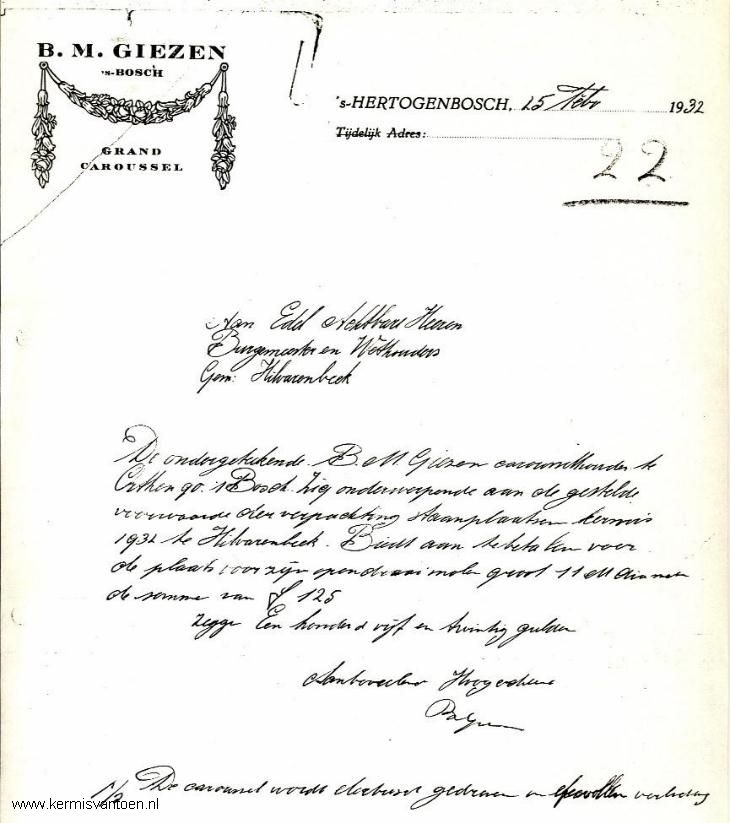 B. M. GIEZEN
's-BOSCH
GRAND
CAROUSSEL
's-HERTOGENBOSCH, 25 Febr 1932
Tijdelijk Adres:
22
Aan Edel Achtbare Heeren
Burgemeester en Wethouders
Gem: Hilvarenbeek
De ondergetekende B. M Giezen carousselhouder te
Orthen 90. 's Bosch. Zig onderwerpende aan de gestelde
voorwaarde der verpachting staanplaatsen kermis
1932 te Hilvarenbeek. Biedt aan te betalen voor
de plaats voor zijn open draaimolen groot 11 M diameter
de somme van f 125
Zegge Een honderd vijf en twintig gulden
Aanbevelend Hoogachtend
De caroussel wordt electrisch gedreven en
www.kermisvantoen.nl